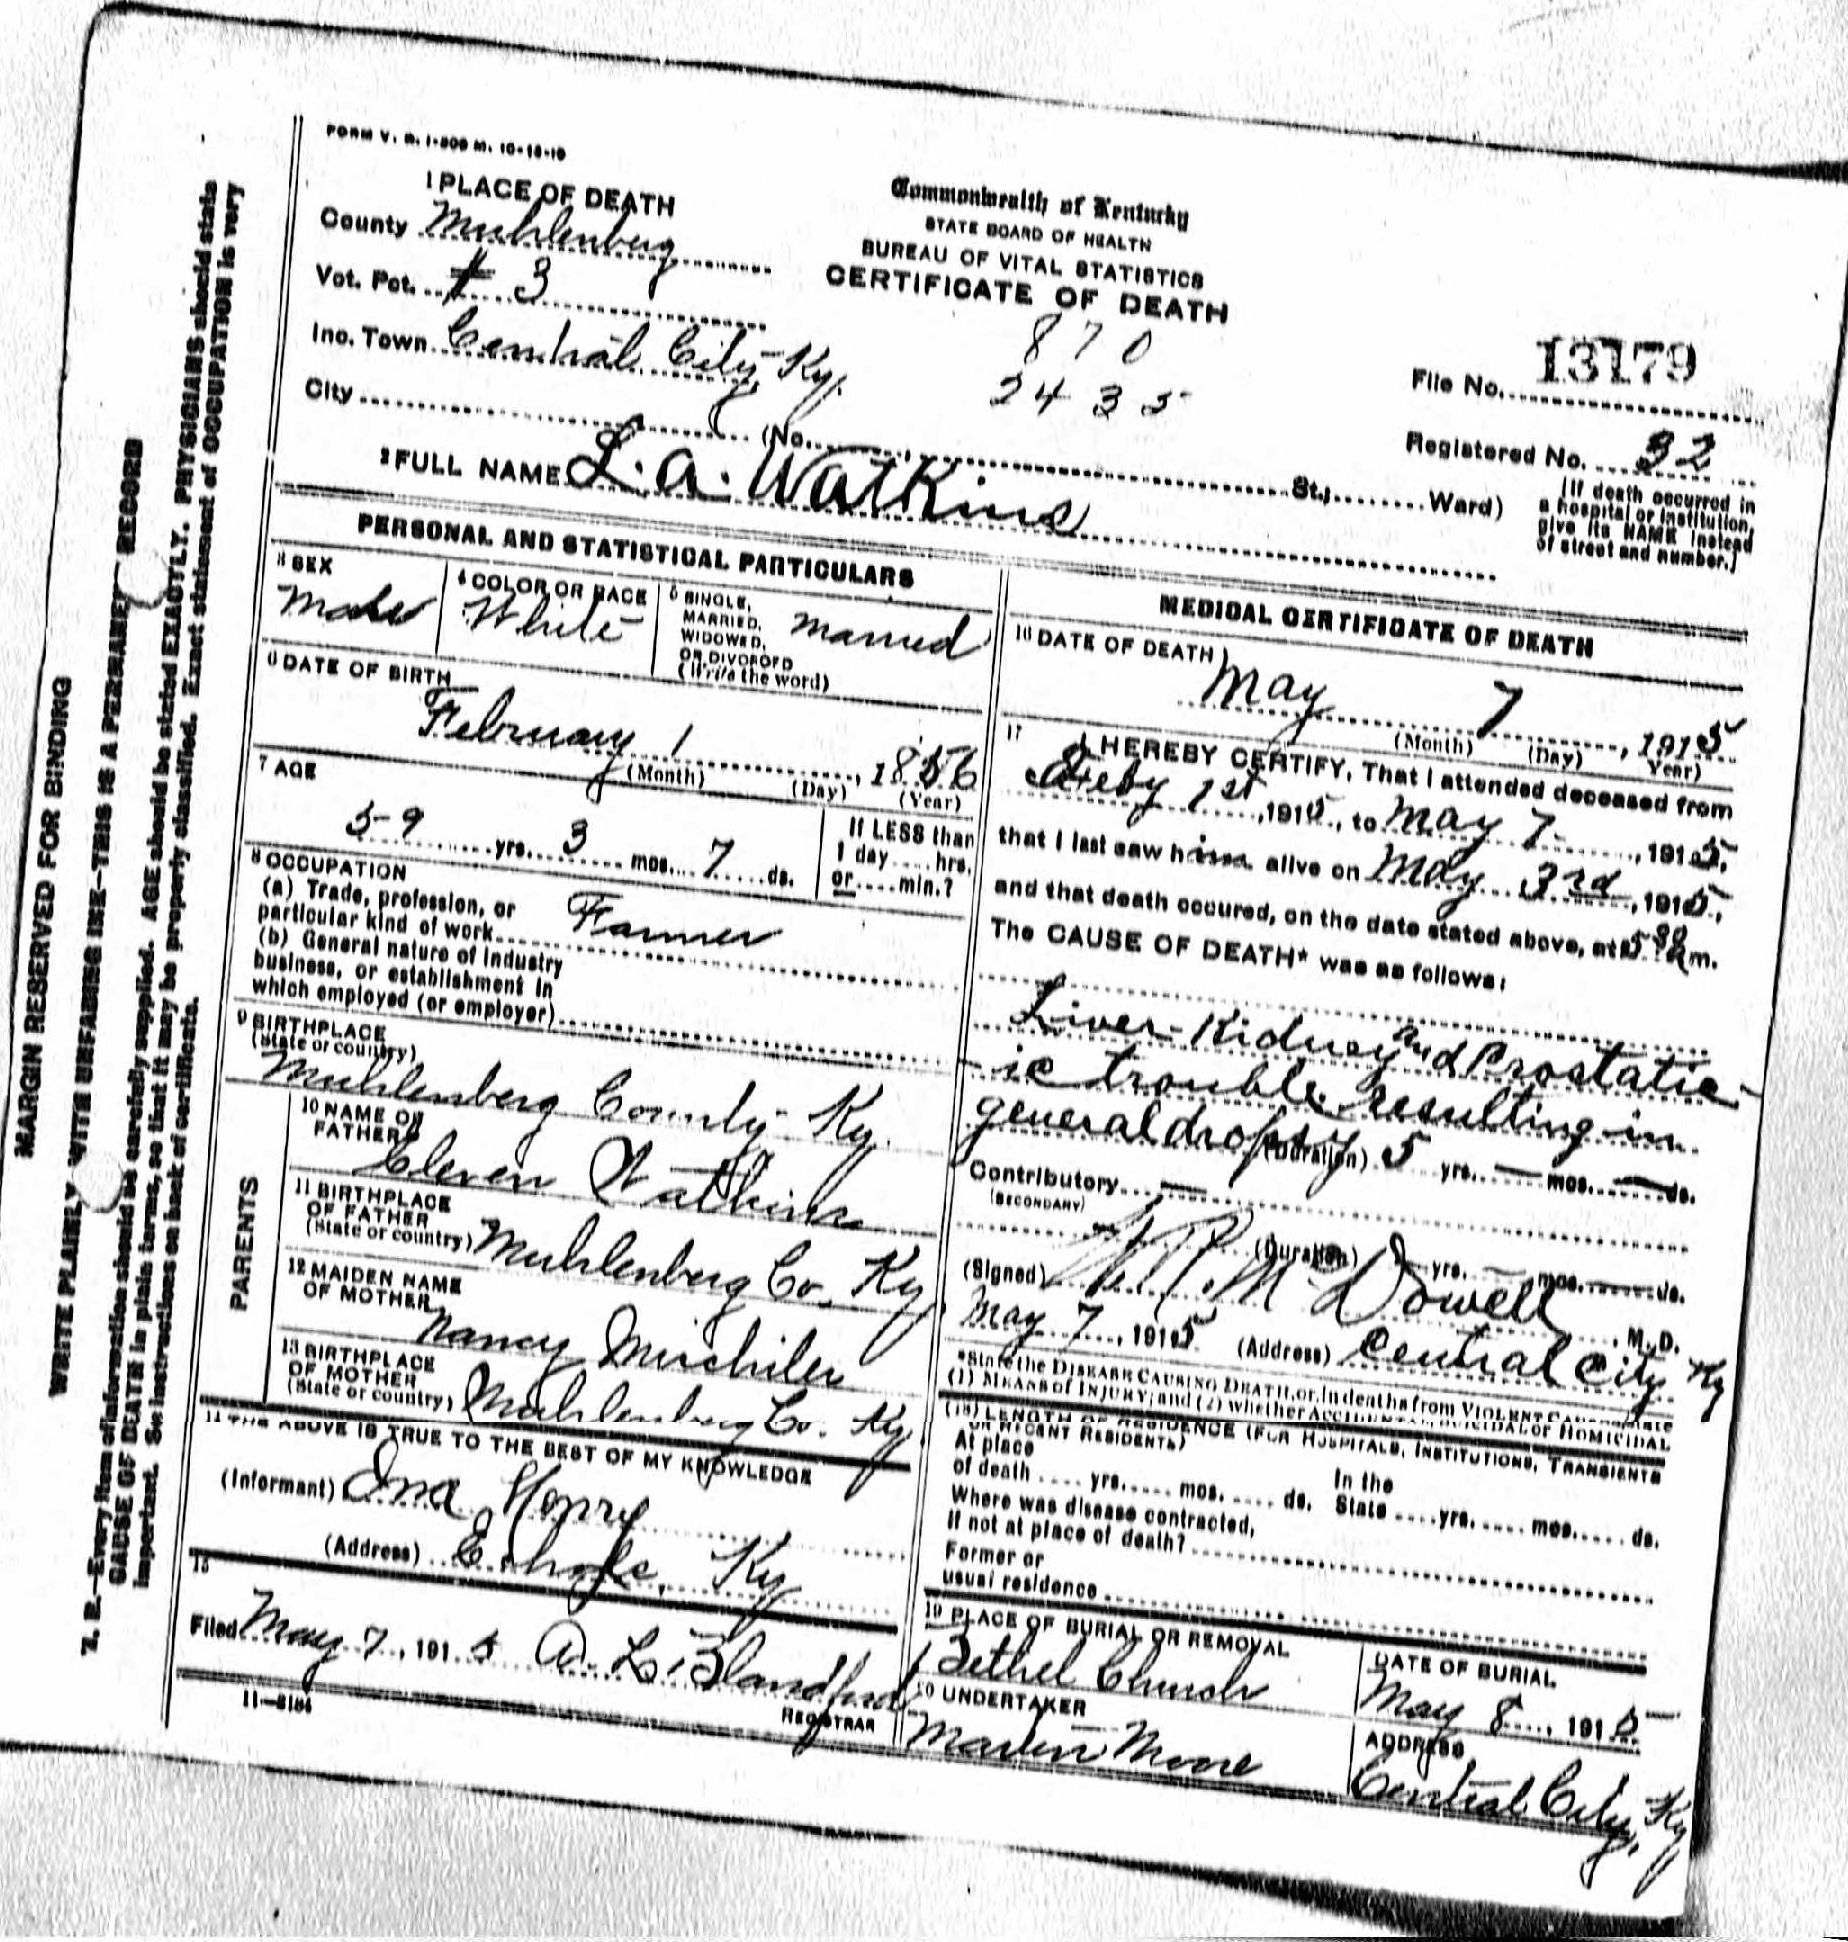 FORM V. S. 1-500 M. 10-18-10
1 PLACE OF DEATH
County Muhlenberg
Vot. Pct. # 3
Inc. Town Central City Ky.
City (No. St.; Ward)
Commonwealth of Kentucky
STATE BOARD OF HEALTH
BUREAU OF VITAL STATISTICS
CERTIFICATE OF DEATH
870
2435
File No. 13179
Registered No. 32
[If death occurred in
a hospital or institution,
give its NAME instead
of street and number.]
2 FULL NAME L. A. Watkins
PERSONAL AND STATISTICAL PARTICULARS
3 SEX
Male
4 COLOR OR RACE
White
5 SINGLE,
MARRIED,
WIDOWED,
OR DIVORCED
(Write the word)
Married
6 DATE OF BIRTH
February 1, 1856
(Month) (Day) (Year)
7 AGE
59 yrs. 3 mos. 7 ds.
If LESS than
1 day .... hrs.
or .... min.?
8 OCCUPATION
(a) Trade, profession, or
particular kind of work Farmer
(b) General nature of industry
business, or establishment in
which employed (or employer)
9 BIRTHPLACE
(State or country)
Muhlenberg County Ky.
PARENTS
10 NAME OF
FATHER
Watkins
11 BIRTHPLACE
OF FATHER
(State or country) Muhlenberg Co. Ky.
12 MAIDEN NAME
OF MOTHER
Nancy
13 BIRTHPLACE
OF MOTHER
(State or country) Muhlenberg Co. Ky.
14 THE ABOVE IS TRUE TO THE BEST OF MY KNOWLEDGE
(Informant) Ina Henry
(Address) Echols, Ky
15
Filed May 7, 1915 A. L. Blandford
REGISTRAR
11-3184
MEDICAL CERTIFICATE OF DEATH
16 DATE OF DEATH
May 7, 1915
(Month) (Day) Year)
17 I HEREBY CERTIFY, That I attended deceased from
Feby 1st, 1915, to May 7, 1915,
that I last saw him alive on May 3rd, 1915,
and that death occured, on the date stated above, at 5 30 a m.
The CAUSE OF DEATH* was as follows:
Liver Kidney and Prostatic
ic trouble resulting in
general dropsy (Duration) 5 yrs. — mos. — ds.
Contributory —
(SECONDARY)
(Duration) yrs. — mos. ds.
(Signed) McDowell, M.D.
May 7, 1915 (Address) Central City Ky
*State the DISEASE CAUSING DEATH, or, in deaths from VIOLENT CAUSES, state
(1) MEANS of INJURY; and (2) whether ACCIDENTAL, SUICIDAL or HOMICIDAL
(18) LENGTH OF RESIDENCE (FOR HOSPITALS, INSTITUTIONS, TRANSIENTS
OR RECENT RESIDENTS)
At place
of death .... yrs. .... mos. .... ds.
In the
State .... yrs. .... mos. .... ds.
Where was disease contracted,
If not at place of death?
Former or
usual residence
19 PLACE OF BURIAL OR REMOVAL
Bethel Church
DATE OF BURIAL
May 8, 1915
20 UNDERTAKER
Martin Moore
ADDRESS
Central City, Ky
MARGIN RESERVED FOR BINDING
WRITE PLAINLY WITH UNFADING INK—THIS IS A PERMANENT RECORD
N. B.—Every item of information should be carefully supplied. AGE should be stated EXACTLY. PHYSICIANS should state
CAUSE OF DEATH in plain terms, so that it may be properly classified. Exact statement of OCCUPATION is very
important. See instructions on back of certificate.